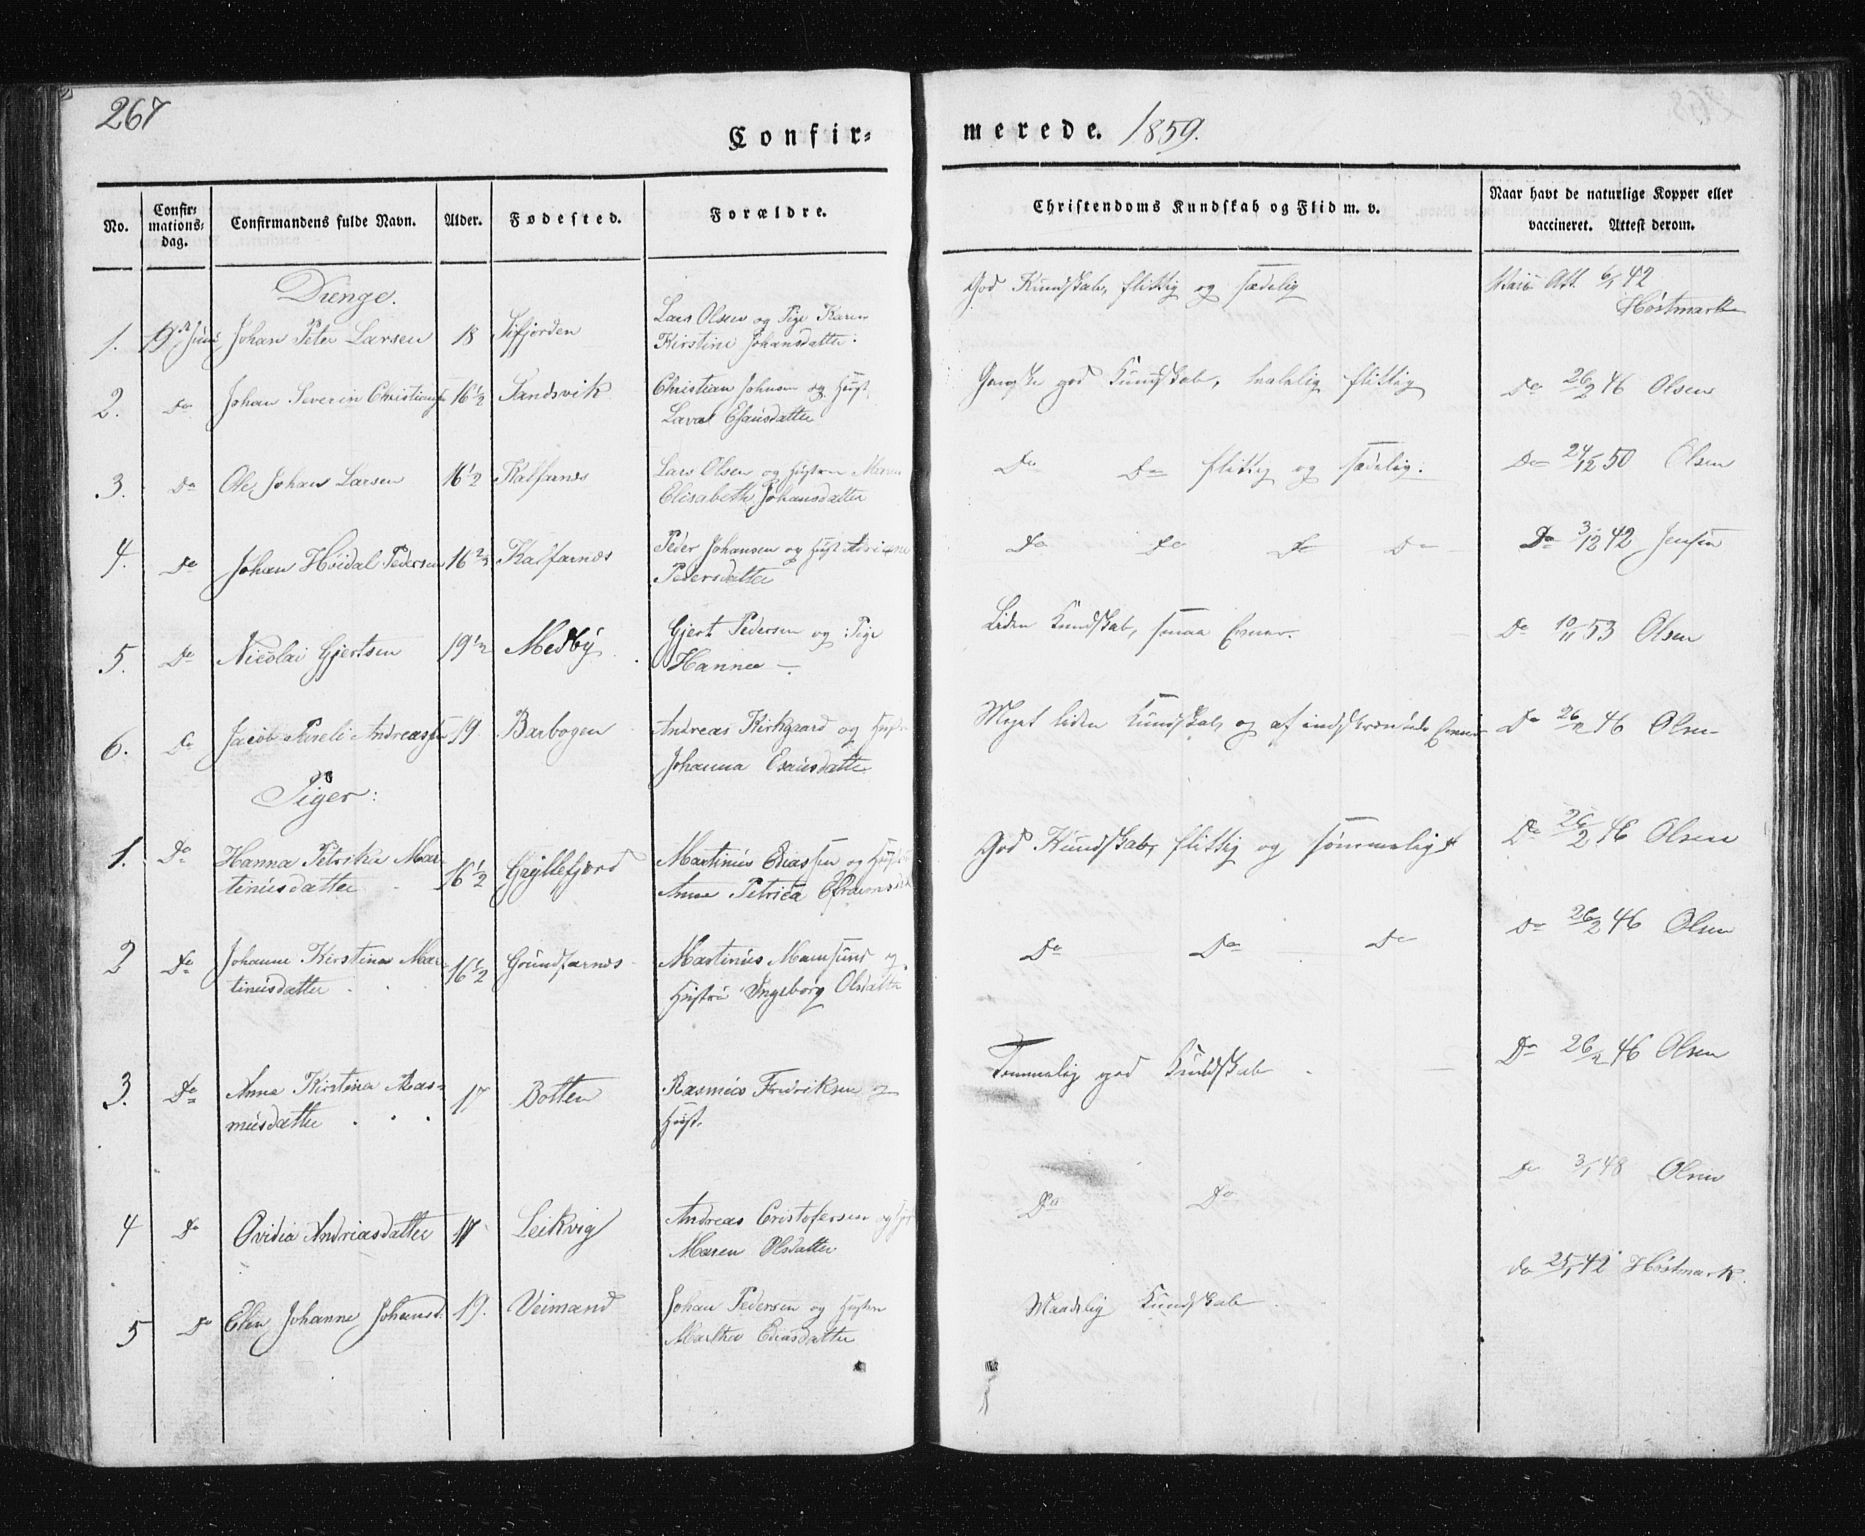 267
Confir=
merede. 1859.
No.
Confir=
mations=
dag.
Confirmandens fulde Navn.
Alder.
Fødested.
Forældre.
Christendoms Kundskab og Flid m. v.
Naar havt de naturlige Kopper eller
vaccineret. Attest derom.
Drenge.
1. 19de Juni Johan Peter Larsen 18 Sifjorden
Lars Olsen og Pige Karen
Kirstine Johansdatter.
God Kundskab, flittig og sædelig
Att. 6/1 42
Høstmark
2. Do Johan Severin 16 1/2 Sandsvik
Christian Johnsen og Hust.
Esausdatter
Ganske god Kundskab, flittig
Do 26/2 46 Olsen
3. Do Ole Johan Larsen 16 1/2 Kalfarnes
Lars Olsen og Hustru Maren
Elisabeth Johansdatter
Do Do flittig og sædelig.
Do 24/12 50 Olsen
4. Do Johan Höidal Pedersen 16 2/3 Kalfarnes
Peder Johansen og Hust
Pedersdatter
Do Do Do Do
Do 3/12 42 Jensen
5. Do Nicolai Gjertsen 19 1/2 Medby
Gjert Pedersen og Pige
Hanna —
Liden Kundskab, smaa Evner.
Do 10/11 53 Olsen
6. Do Jacob Andreassen 19 Barbogen
Andreas Kirkgaard og Hust
Johanna Esausdatter
Meget liden Kundskab og af indskrænkede Evner
Do 26/2 46 Olsen
Piger:
1. Do Hanna Petrika Mar=
tinusdatter 16 1/2 Gryllefjord
Martinus Eliassen og Hustru
Anna Petrica
God Kundskab, flittig og sømmelig
Do 26/2 46 Olsen
2 Do Johanne Kirstina Mar=
tinusdatter 16 1/2 Grundfarnes
Martinus og
Hustru Ingeborg Olsdatter
Do Do Do
Do 26/2 46 Olsen
3. Do Anna Kirstina Ras=
musdatter 17 Botten
Rasmus Fredriksen og
Hust.
Temmelig god Kundskab
Do 26/2 46 Olsen
4 Do Ovidia Andreasdatter 17 Leikvig
Andreas Cristofersen og
Maren Olsdatter
Do Do
Do 3/1 48 Olsen
5 Do Elen Johanne Johansd. 19. Veimand
Johan Pedersen og Hustru
Martha Eliasdatter
Maadelig Kundskab
do 25/1 42 Høstmark.